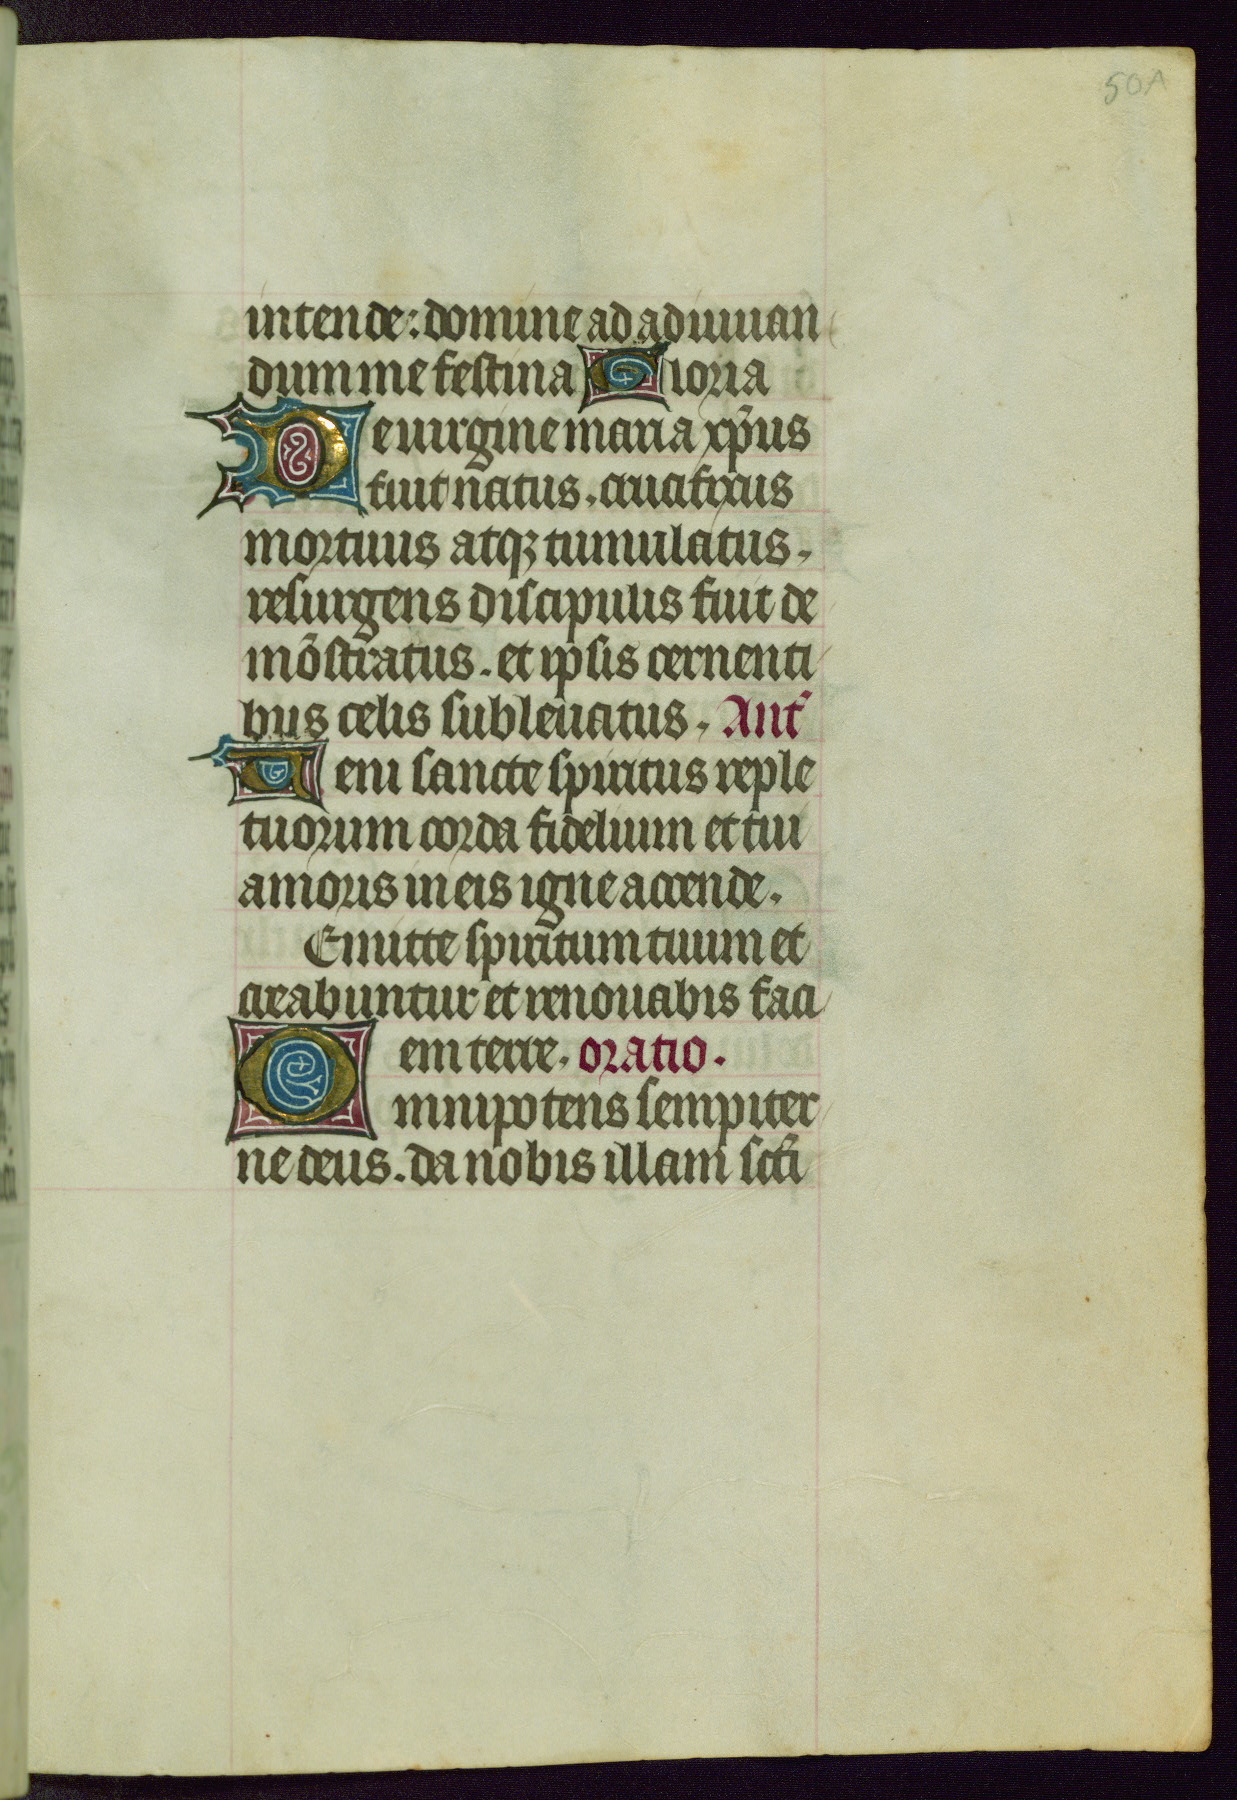 50A
intende: domine ad adiuuan
dum me festina Gloria
De uirgine maria xp̄us
fuit natus. crucifixus
mortuus atqꝫ tumulatus.
resurgens discipulis fuit de
mōstratus. et ipsis cernenti
bus celis subleuatus. Ant̄
Veni sancte spiritus reple
tuorum corda fidelium et tui
amoris in eis igne accende.
Emitte spiritum tuum et
creabuntur et renouabis faci
em terre. oratio.
Omnipotens sempiter
ne deus. da nobis illam sc̄ti